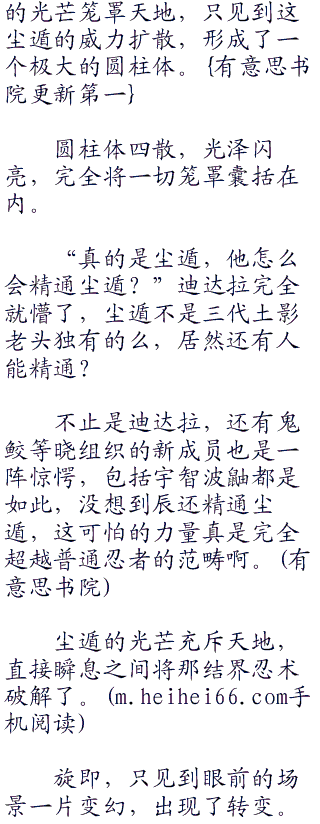 的光芒笼罩天地，只见到这
尘遁的威力扩散，形成了一
个极大的圆柱体。{有意思书
院更新第一}
圆柱体四散，光泽闪
亮，完全将一切笼罩囊括在
内。
“真的是尘遁，他怎么
会精通尘遁？”迪达拉完全
就懵了，尘遁不是三代土影
老头独有的么，居然还有人
能精通？
不止是迪达拉，还有鬼
鲛等晓组织的新成员也是一
阵惊愕，包括宇智波鼬都是
如此，没想到辰还精通尘
遁，这可怕的力量真是完全
超越普通忍者的范畴啊。(有
意思书院)
尘遁的光芒充斥天地，
直接瞬息之间将那结界忍术
破解了。(m.heihei66.com手
机阅读)
旋即，只见到眼前的场
景一片变幻，出现了转变。